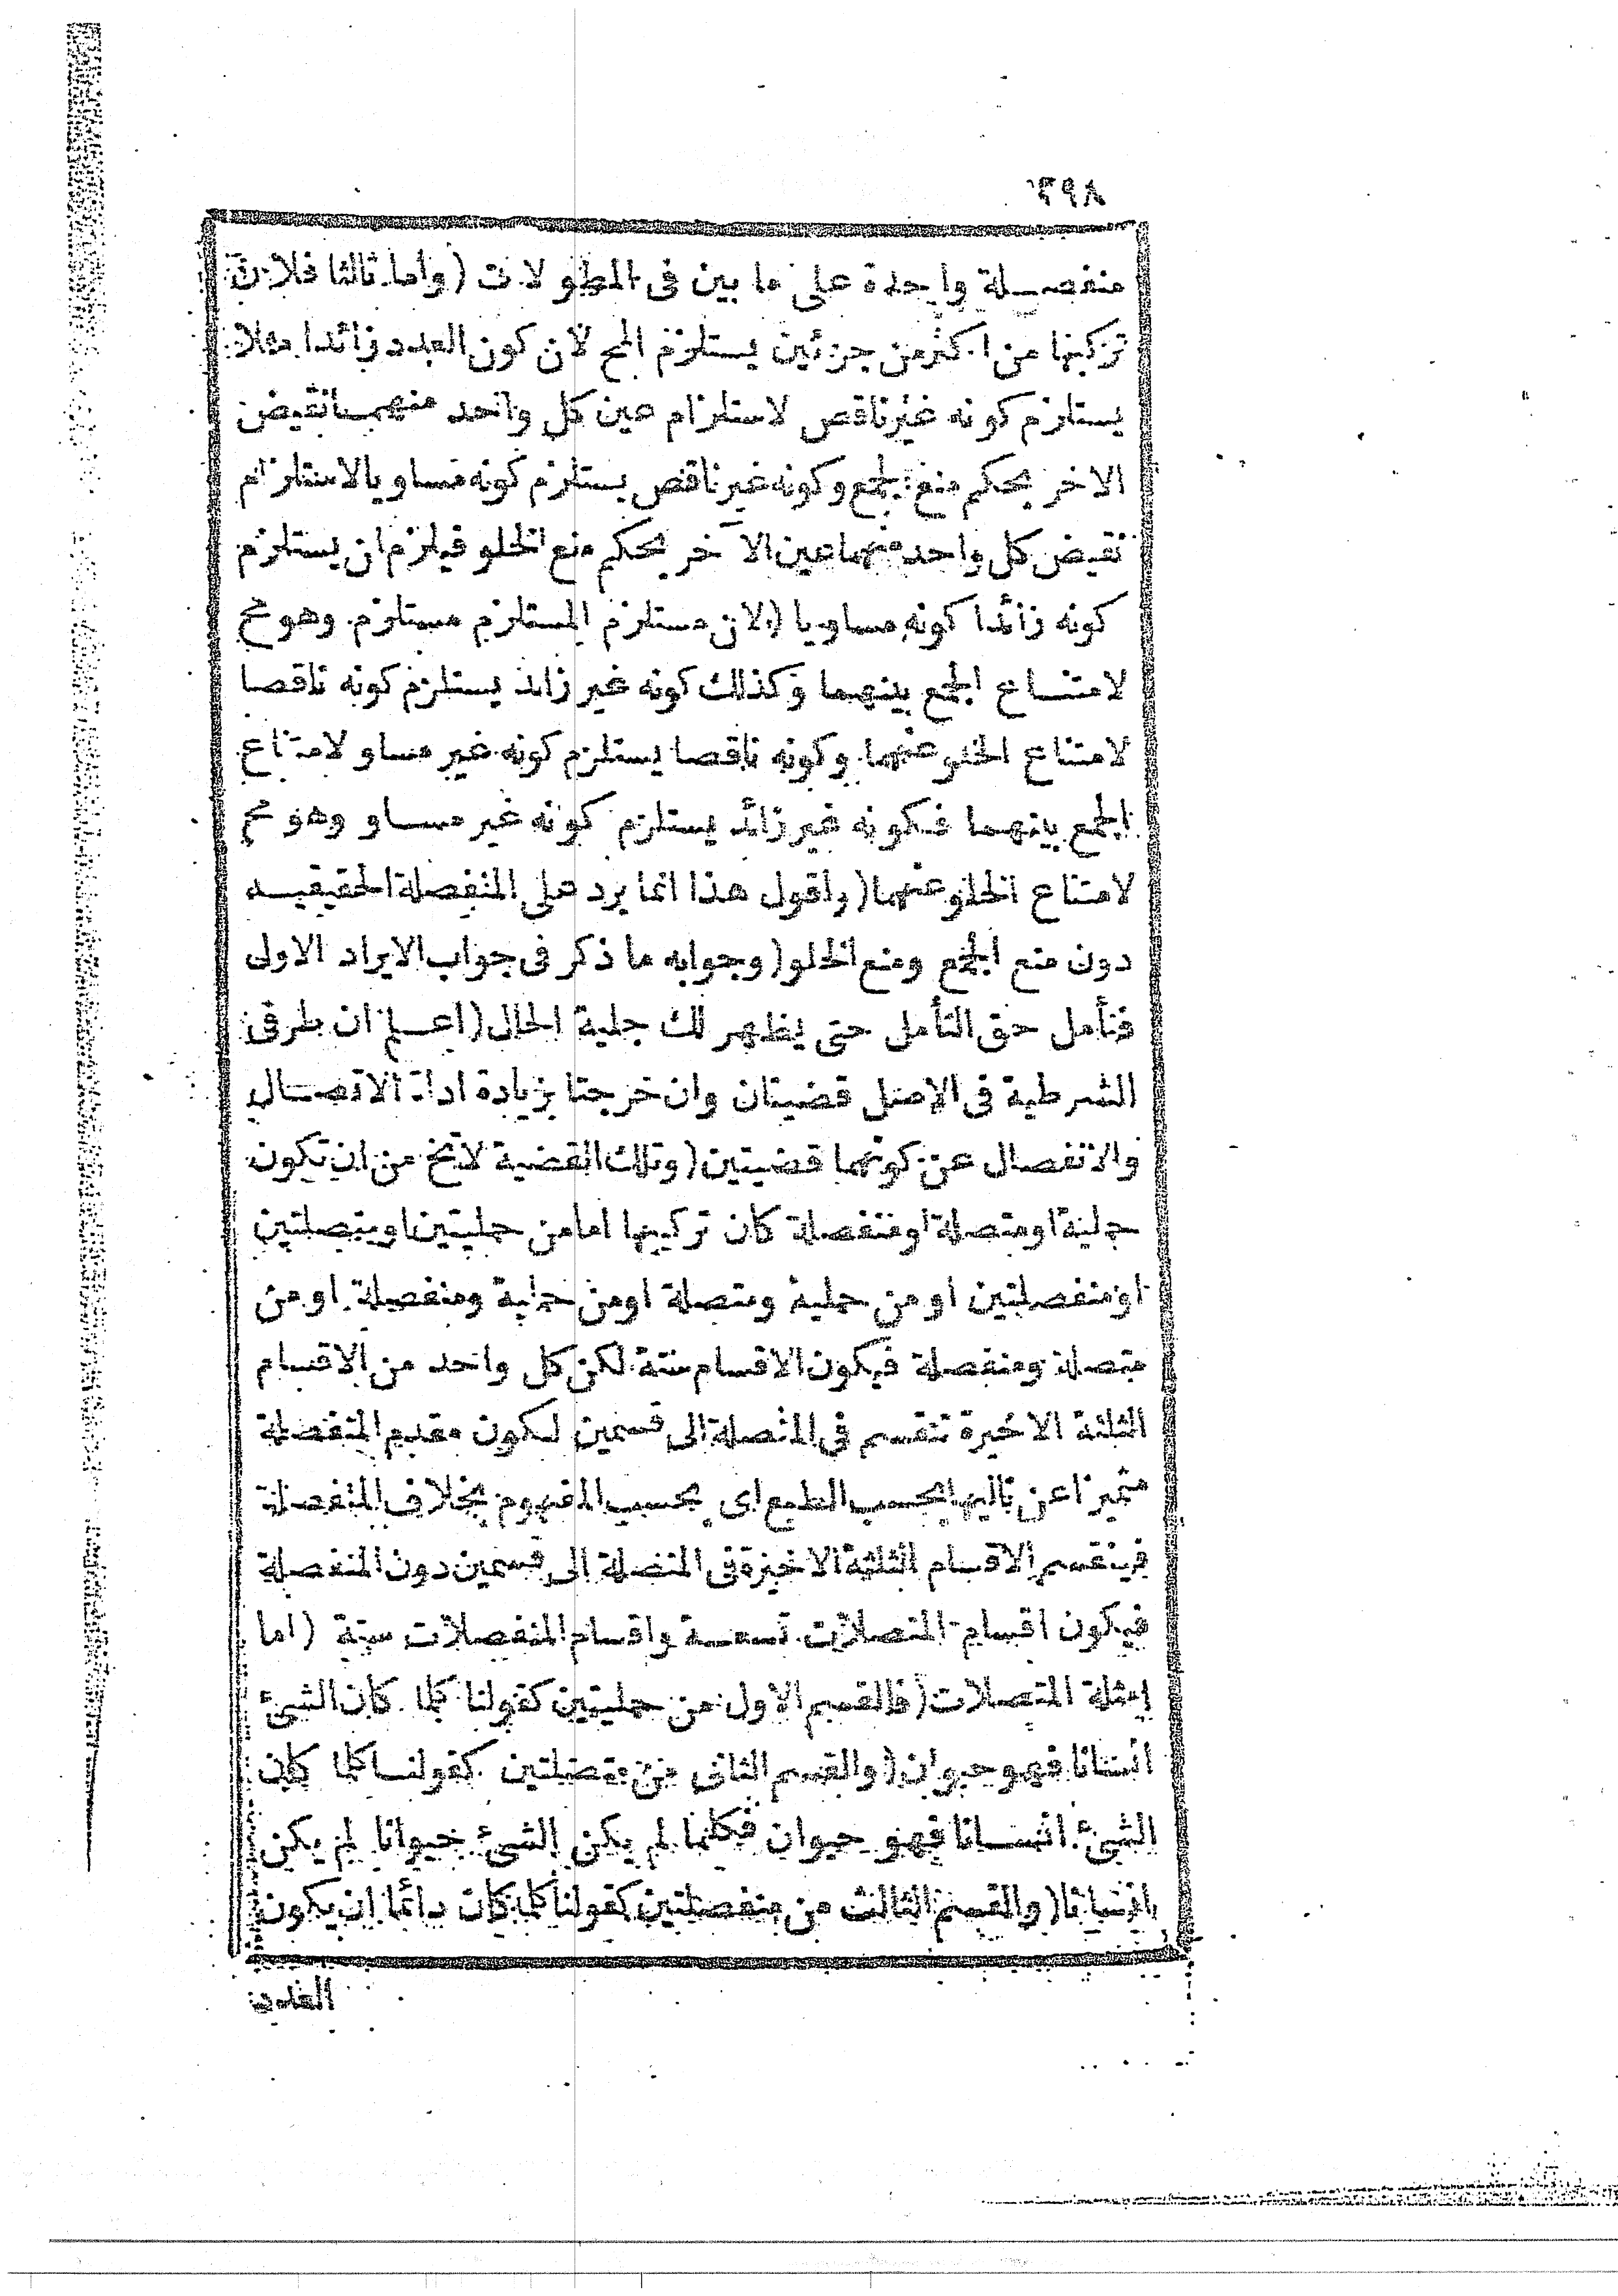 ٣٩٨
منفصلة واحدة على ما بين فى المطولات (واما ثالثا فلان
تركبها من اكثر من جزئين يستلزم المح لان كون العدد زائدا مثلا
يستلزم كونه غير ناقص لاستلزام عين كل واحد منهما نقيض
الاخر بحكم منع الجمع وكونه غير ناقص يستلزم كونه مساويا لاستلزام
نقيض كل واحد منهما عين الآخر بحكم منع الخلو فيلزم ان يستلزم
كونه زائدا كونه مساويا (لان مستلزم المستلزم مستلزم وهو مح
لامتناع الجمع بينهما وكذلك كونه غير زائد يستلزم كونه ناقصا
لامتناع الخلو عنهما وكونه ناقصا يستلزم كونه غير مساو لامتناع
الجمع بينهما فكونه غير زائد يستلزم كونه غير مساو وهو مح
لامتناع الخلو عنهما (واقول هذا انما يرد على المنفصلة الحقيقيه
دون منع الجمع ومنع الخلو (وجوابه ما ذكر فى جواب الايراد الاولى
فتأمل حق التأمل حتى يظهر لك جلية الحال (اعلم ان طرفى
الشرطية فى الاصل قضيتان وان خرجتا بزيادة اداة الاتصال
والانفصال عن كونهما قضيتين (وتلك القضية لا يخ من ان تكون
حملية او متصلة او منفصلة كان تركيبها اما من حمليتين او متصلتين
او منفصلتين او من حملية ومتصلة او من حملية ومنفصلة او من
متصلة ومنفصلة فيكون الاقسام ستة لكن كل واحد من الاقسام
الثلثة الاخيرة تنقسم فى المتصلة الى قسمين لكون مقدم المتصلة
متميزا عن تاليها بحسب الطبع اى بحسب المفهوم بخلاف المنفصلة
فينقسم الاقسام الثلثة الاخيرة فى المتصلة الى قسمين دون المنفصلة
فيكون اقسام المتصلات تسعة واقسام المنفصلات ستة (اما
امثلة المتصلات (فالقسم الاول من حمليتين كقولنا كلما كان الشئ
انسانا فهو حيوان (والقسم الثانى من متصلتين كقولنا كلما كان
الشئ انسانا فهو حيوان فكلما لم يكن الشئ حيوانا لم يكن
انسانا (والقسم الثالث من منفصلتين كقولنا كلما كان دائما ان يكون
العدد